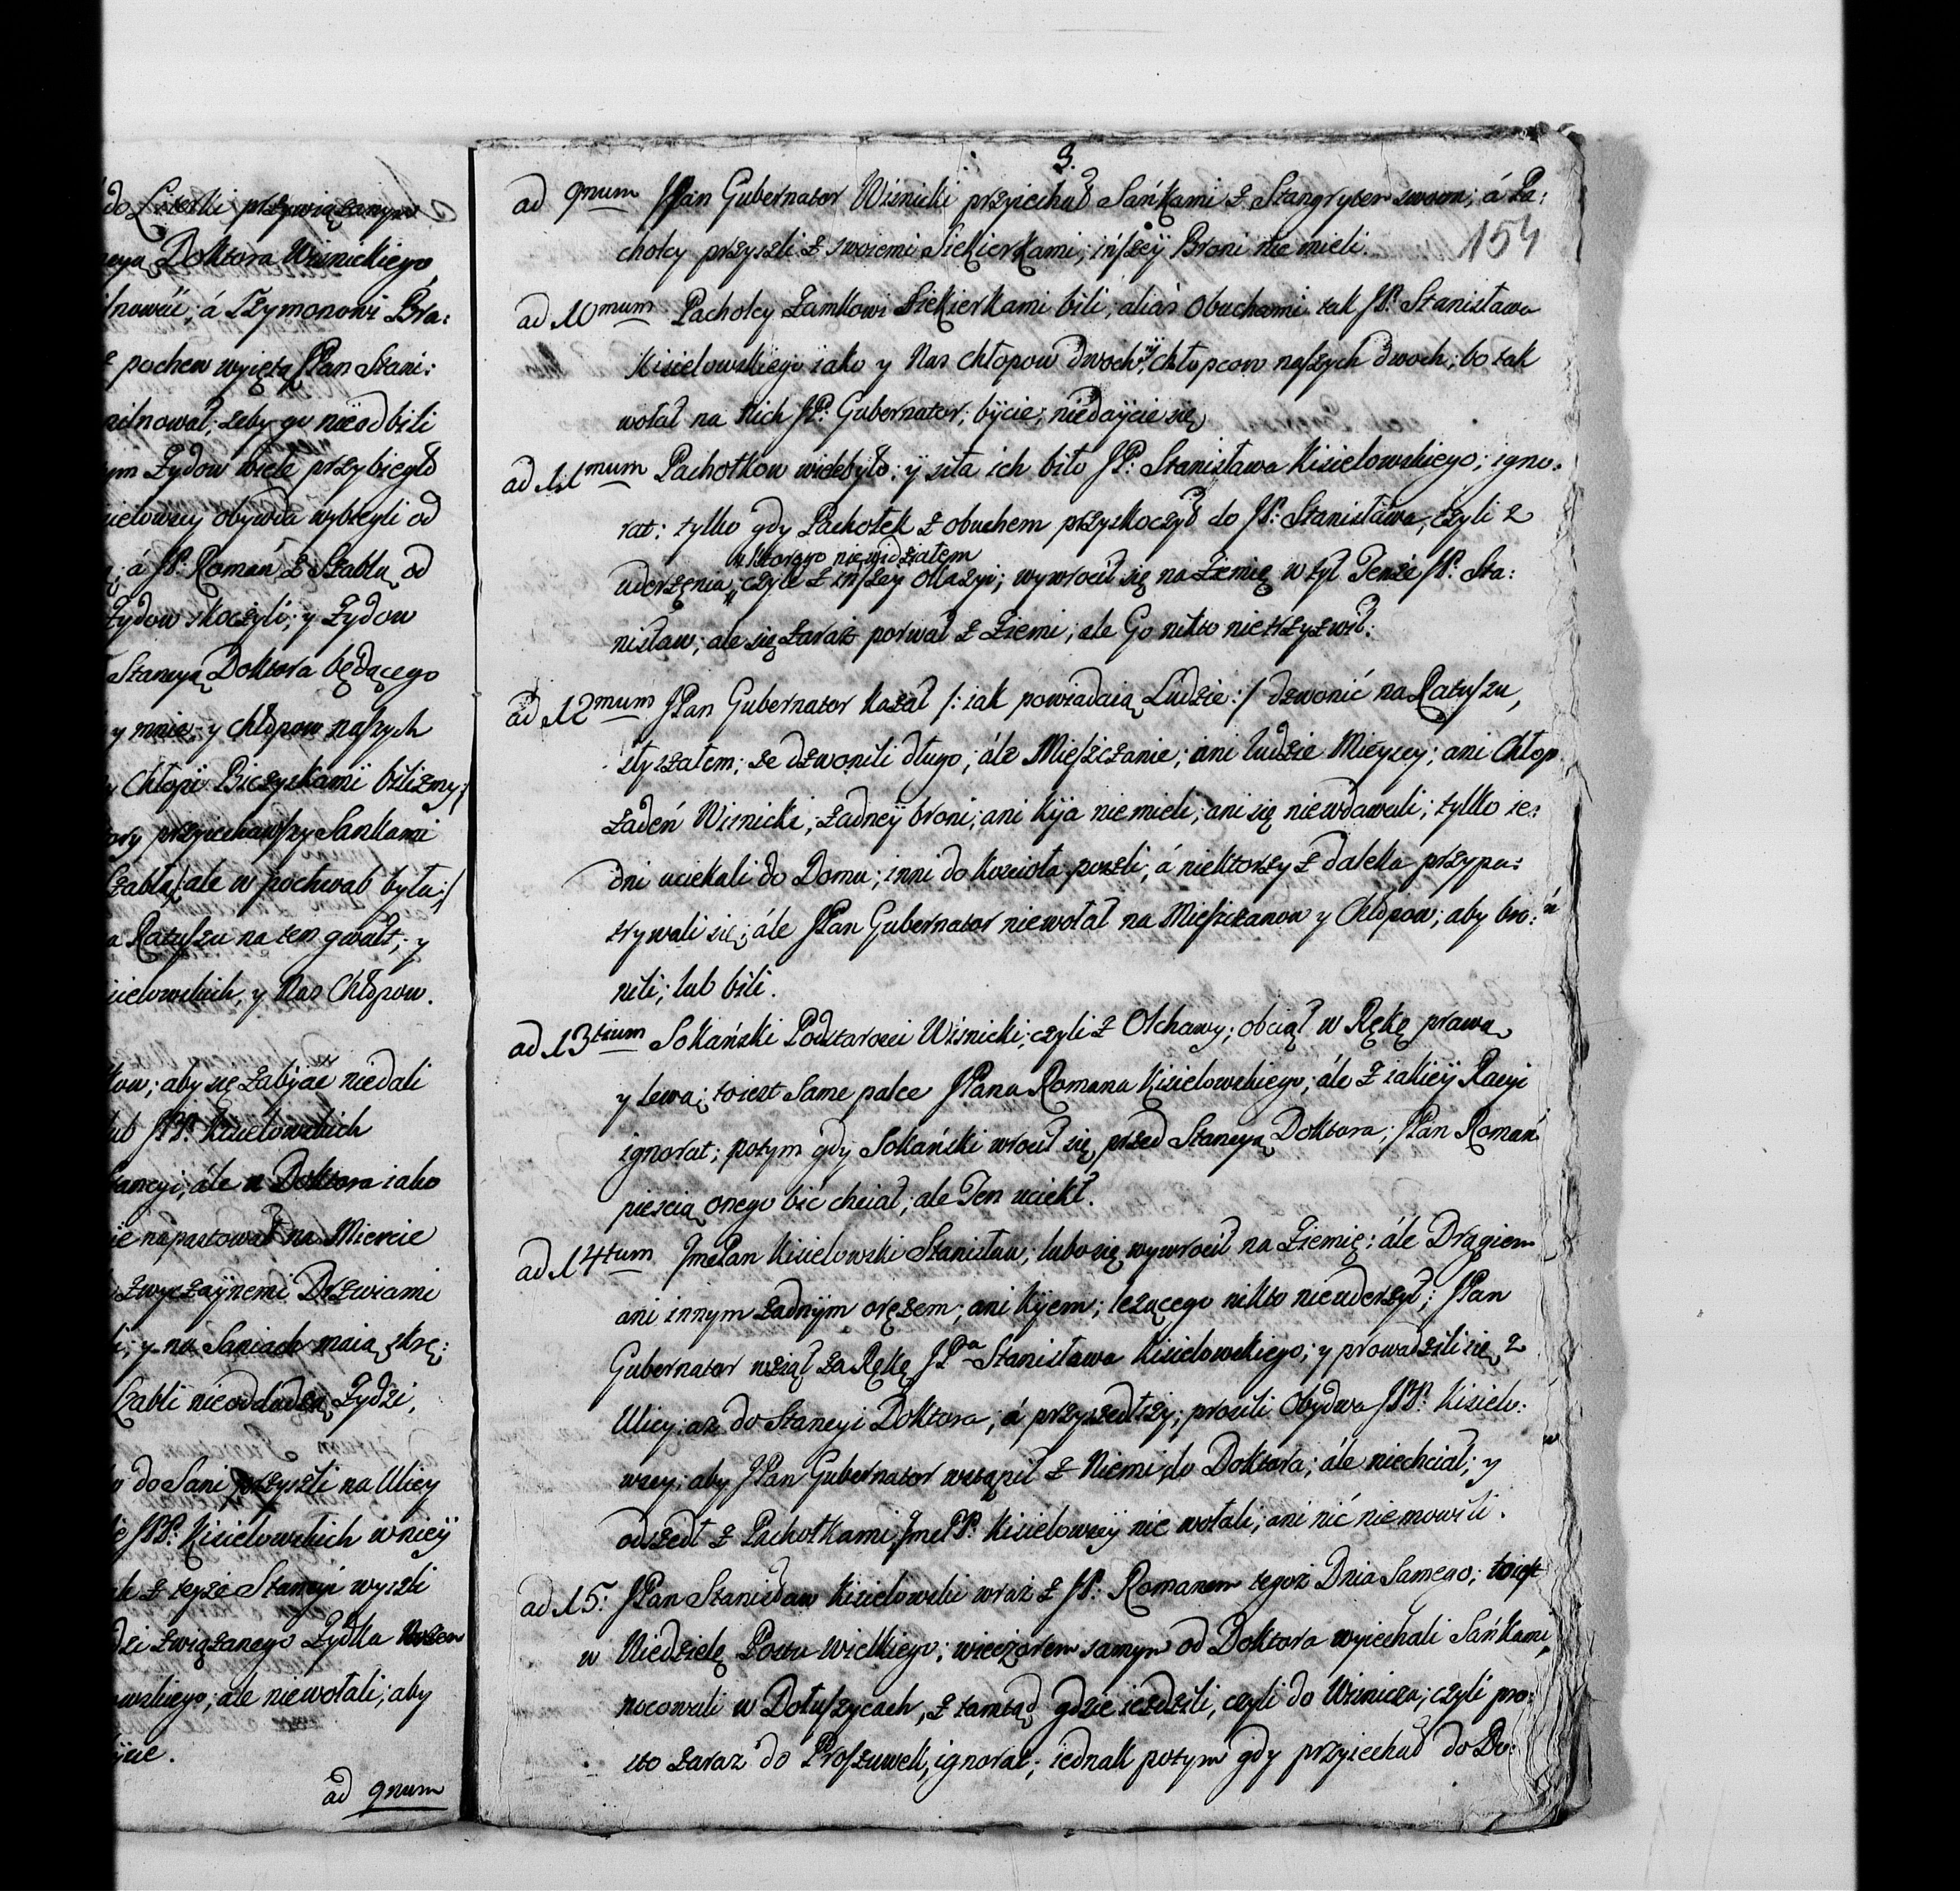 do Literki przywiązanym
Doktora Wisnickiego
nowić; á Szymonowi Bra:
z pochew wyiętą JPan Stani:
pilnował, żeby go nieodbili
Zydow wiele przybiegło
obydwa wybiegli od
á JP. Roman z Szablą od
Zydow skoczyli; y Zydow
Stancyą Doktora będącego
y mnie y chłopow naszych
Chłopi Biczyskami biliżmy;
przyiechawszy Sankami
Szablą ale w pochwał była:/
Ratuszu na ten gwałt; y
y Nas Chłopow.
aby się zabijać niedali
JPP. Kisielowskich
ále u Doktora iako
napastował na Miescie
zwyczaynemi Drzwiami
y na Saniach maią skrę:
Szabli nieoddadzą Zydzi,
do Sani przyszli na Ulicy
JPP. Kisielowskich w niey
z teyże Stancyi wyszli
związanego Zydka
ale niewołali; aby
ad 9num
3.
154
ad 9num JPan Gubernator Wisnicki przyiechał Sańkami z Stangrytem swoim; á Pa:
chołcy przyszli z swoiemi Siekierkami; inszey Broni nie mieli.
ad 10mum Pachołcy Zamkowi Siekierkami bili, alias Obuchami tak JP. Stanisława
Kisielowskiego iako y Nas chłopow dwoch, y chłopcow naszych dwoch; bo tak
wołał na Nich JP: Gubernator; bijcie; niedaycie się
ad 11mum Pachołkow wiele było: y siła ich biło JP: Stanisława Kisielowskiego; igno:
rat: tylko gdy Pachołek z obuchem przyskoczył do JP: Stanisława, czyli z
ktorego niewidziałem
uderzenia, czyli z inszey okazyi; wywrocił się na Ziemię w tył Tenże JP: Sta:
nisław; ale się zaraz porwał z Ziemi; ale Go nikto nietrzyżwił:
ad 12mum JPan Gubernator kazał /: iak powiadaią Ludzie:/ dzwonić na Ratuszu,
słyszałem; że dzwonili długo; ále Mieszczanie; ani ludzie Mieyscy; ani Chłop
żaden Wisnicki; żadney broni; ani kija nie mieli; ani się niewdawali; tylko ie:
dni uciekali do Domu; inni do kościoła poszli; á niektorzy z daleka przypa:
trywali się; ále JPan Gubernator niewołał na Mieszczanow y Chłopow; aby bro:
nili; lub bili.
ad 13tium Sokański Podstarosci Wisnicki; czyli z Olchawy; obciął w Rękę prawą
y lewą; to iest same palce JPana Romana Kisielowskiego; ále z iakiey Racyi
ignorat; potym gdy Sokański wrocił się przed Stancyą Doktora; JPan Roman
pięscią onego bić chciał; ale Ten uciekł.
ad 14tum JmcPan Kisielowski Stanisław; lubo się wywrocił na Ziemię; ále Drągiem
ani innym żadnym orężem; ani kijem; leżącego nikto nieuderzył; JPan
Gubernator wziął za Rękę JPa Stanisława Kisielowskiego; y prowadzili się z
Ulicy; aż do Stancyi Doktora; á przyszedłszy; prosili Obydwa JPP. Kisielo:
wscy; aby JPan Gubernator wstąpił z Niemi do Doktora; ále niechciał; y
odszedł z Pachołkami JmcPP. Kisielowscy nic wołali, ani nić nie mowili.
ad 15. JPan Stanisław Kisielowski wraz z JP. Romanem tegoż Dnia Samego; toiest
w Niedzielę Postu Wielkiego; wieczorem samym od Doktora wyiechali Sańkami,
nocowali w Dołuszycach, z tamtąd gdzie ieździli, czyli do Wisnicza; czyli pro:
sto zaraz do Proszuwek, ignorat; iednak potym gdy przyiechał do Do: